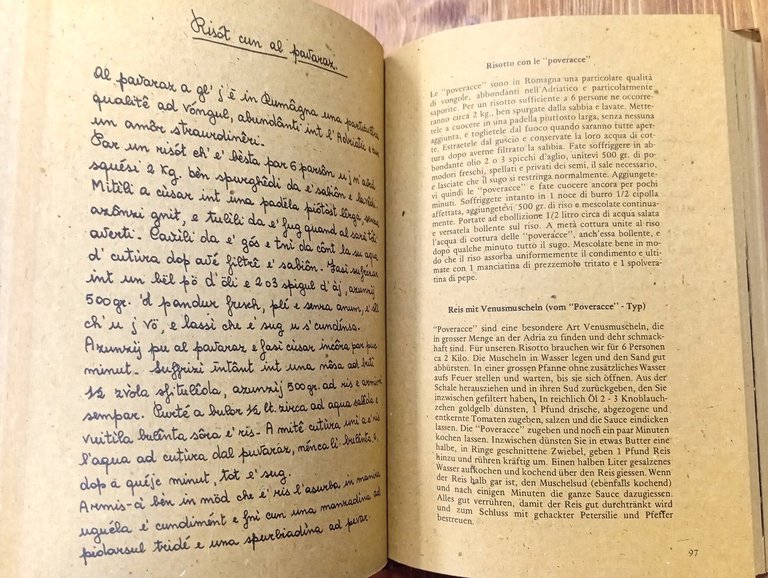 Risòt cun al pavaraz.
Al pavaraz a gl' j'è in Rumâgna una particulêr
qualitê ad vóngul, abundânti int l'Adriatic e
un amôr straurdinêri.
Par un risòt ch' e' bêsta par 6 parsôn u j'n
squési 2 Kg. bên spurghêdi da e' sabiôn e lavêdi.
Mitìli a cùsar int una padëla piótòst lêrga, senza
azônzi gnit, e tulìli da e' fug quand al sarà tôti
averti. Cavìli da e' gós e tnì da cônt la su aqua
d' cutùra dop avé filtrê e' sabiôn. Fasì sufrézar
int un bël pô d'ôli 2 o 3 spìgul d'âj, azunzìj
500 gr. 'd pandur fresch, plé e senza anum, e' sêl
ch' u j vô, e lassì che e' sug u s'cundénsa.
Azunzìj pu al pavaraz e fasì cùsar incôra par puc
minut. Sufrizì intânt int una nôsa ad butì
1/2 zvóla sfitulêda, azunzìj 500 gr. ad ris e armis-cê
sempar. Purtê a bulôr 1/2 lt. zirca ad aqua salêda e
vuitìla bulênta sôra e' ris. A mitê cutùra unì a e' ris
l'aqua ad cutùra dal pavaraz, nênca lì bulênta, e,
dop a quéje minut, tot e' sug.
Armis-cì bên in môd che e' ris l'asurba in manira
uguéla e' cundimént e fnì cun una manzadìna ad
pidarsul tridê e una spurbiadìna ad pévar.
Risotto con le "poveracce"
Le "poveracce" sono in Romagna una particolare qualità
di vongole, abbondanti nell'Adriatico e particolarmente
saporite. Per un risotto sufficiente a 6 persone ne occorre-
ranno circa 2 kg., ben spurgate dalla sabbia e lavate. Mette-
tele a cuocere in una padella piuttosto larga, senza nessuna
aggiunta, e toglietele dal fuoco quando saranno tutte aper-
te. Estraetele dal guscio e conservate la loro acqua di cot-
tura dopo averne filtrato la sabbia. Fate soffriggere in ab-
bondante olio 2 o 3 spicchi d'aglio, unitevi 500 gr. di po-
modori freschi, spellati e privati dei semi, il sale necessario
e lasciate che il sugo si restringa normalmente. Aggiungete-
vi quindi le "poveracce" e fate cuocere ancora per pochi
minuti. Soffriggete intanto in 1 noce di burro 1/2 cipolla
affettata, aggiungetevi 500 gr. di riso e mescolate continua-
mente. Portate ad ebollizione 1/2 litro circa di acqua salata
e versatela bollente sul riso. A metà cottura unite al riso
l'acqua di cottura delle "poveracce", anch'essa bollente, e
dopo qualche minuto tutto il sugo. Mescolate bene in mo-
do che il riso assorba uniformemente il condimento e ulti-
mate con 1 manciatina di prezzemolo tritato e 1 spolvera-
tina di pepe.
Reis mit Venusmuscheln (vom "Poveracce" - Typ)
"Poveracce" sind eine besondere Art Venusmuscheln, die
in grosser Menge an der Adria zu finden und sehr schmack-
haft sind. Für unseren Risotto brauchen wir für 6 Personen
ca 2 Kilo. Die Muscheln in Wasser legen und den Sand gut
abbürsten. In einer grossen Pfanne ohne zusätzliches Wasser
aufs Feuer stellen und warten, bis sie sich öffnen. Aus der
Schale herausziehen und in ihren Sud zurückgeben, den Sie
inzwischen gefiltert haben. In reichlich Öl 2 - 3 Knoblauch-
zehen goldgelb dünsten, 1 Pfund drische, abgezogene und
entkernte Tomaten zugeben, salzen und die Sauce eindicken
lassen. Die "Poveracce" zugeben und noch ein paar Minuten
kochen lassen. Inzwischen dünsten Sie in etwas Butter eine
halbe, in Ringe geschnittene Zwiebel, geben 1 Pfund Reis
hinzu und rühren kräftig um. Einen halben Liter gesalzenes
Wasser aufkochen und kochend über den Reis giessen. Wenn
der Reis halb gar ist, den Muschelsud (ebenfalls kochend)
und nach einigen Minuten die ganze Sauce dazugiessen.
Alles gut verrühren, damit der Reis gut durchtränkt wird
und zum Schluss mit gehackter Petersilie und Pfeffer
bestreuen.
97